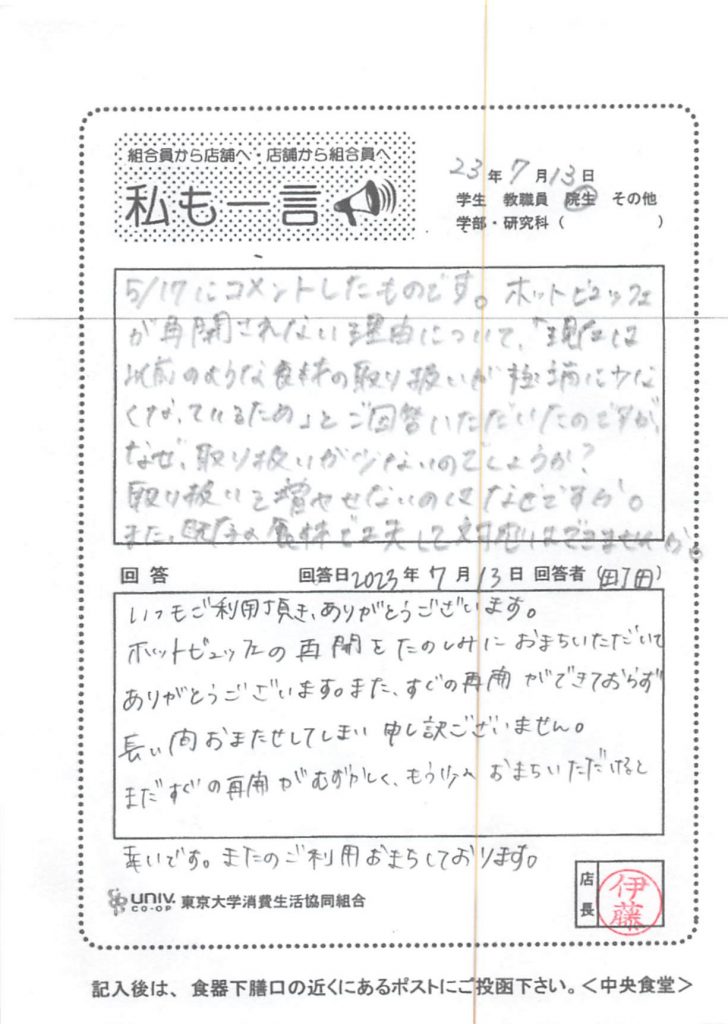 組合員から店舗へ・店舗から組合員へ
私も一言
23年7月13日
学生 教職員 院生 その他
学部・研究科( )
5/17にコメントしたものです。ホットビュッフェ
が再開されない理由について、「現在は
以前のような食材の取り扱いが極端に少な
くなっているため」とご回答いただいたのですが、
なぜ、取り扱いが少ないのでしょうか?
取り扱いを増やせないのはなぜですか。
また、既存の食材で工夫して対応はできませんか。
回答 回答日2023年7月13日 回答者(町田)
いつもご利用頂き、ありがとうございます。
ホットビュッフェの再開をたのしみにおまちいただいて
ありがとうございます。また、すぐの再開ができておらず
長い間おまたせしてしまい申し訳ございません。
まだすぐの再開がむずかしく、もう少々おまちいただけると
幸いです。またのご利用おまちしております。
UNIV. CO-OP 東京大学消費生活協同組合
店長 伊藤
記入後は、食器下膳口の近くにあるポストにご投函下さい。<中央食堂>